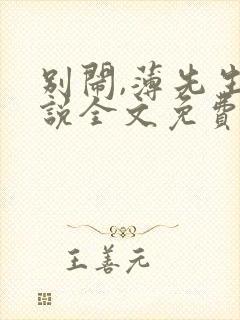 别鬧,薄先生
說全文免費
王善元